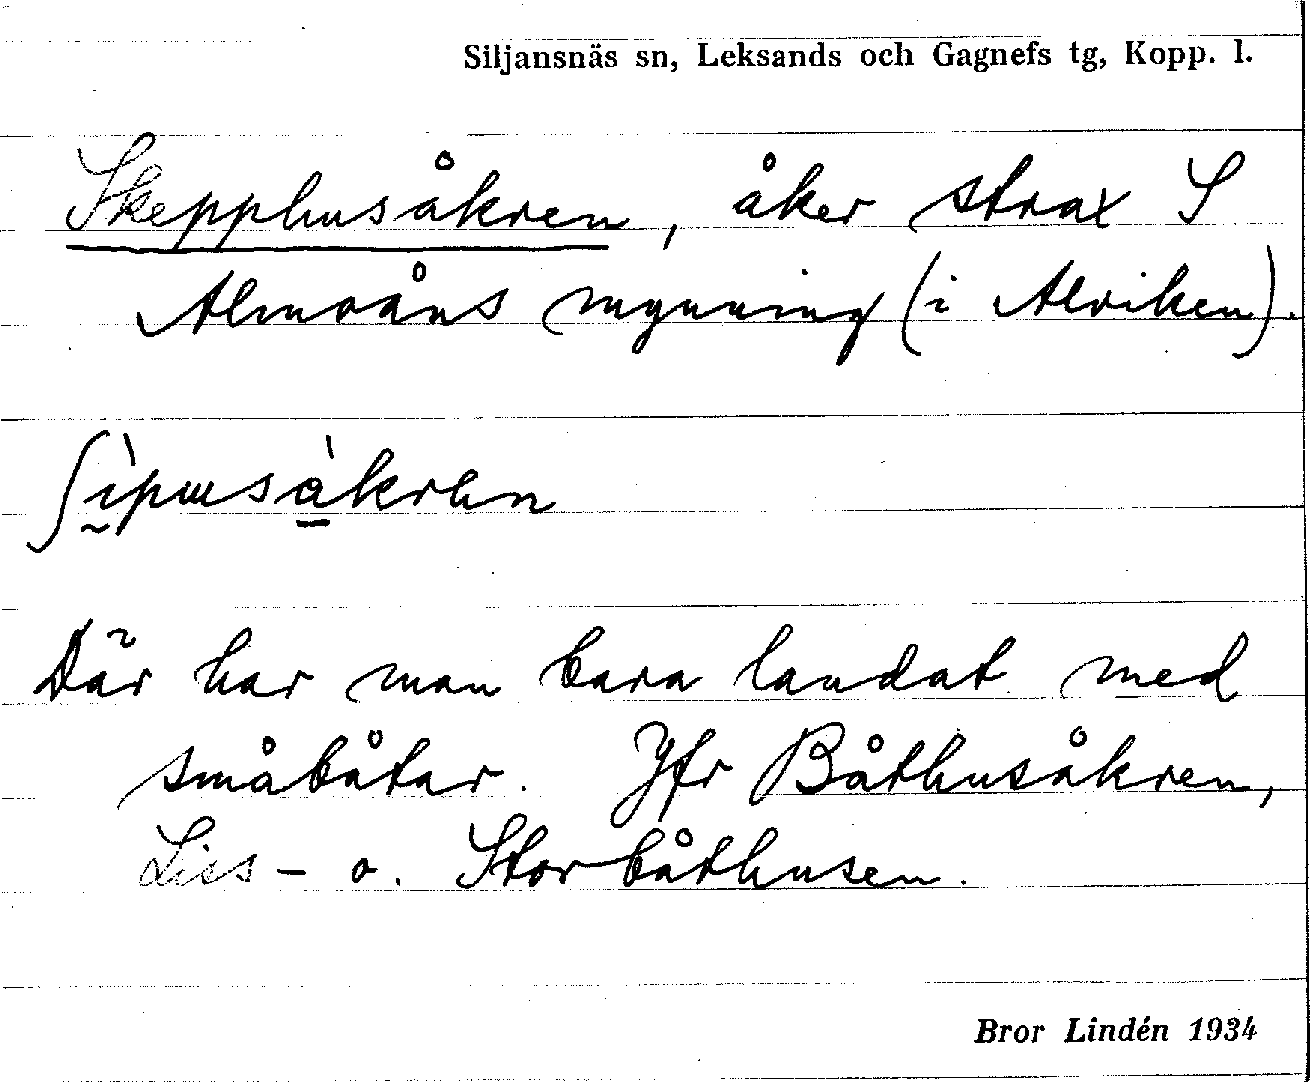 Siljansnäs sn, Leksands och Gagnefs tg, Kopp. l.
Skepphusåkren, åker strax S
Almoåns mynning (i Alviken).
Där har man bara landat med
småbåtar. Jfr Båthusåkren,
Liss- o. Storbåthusen.
Bror Lindén 1934